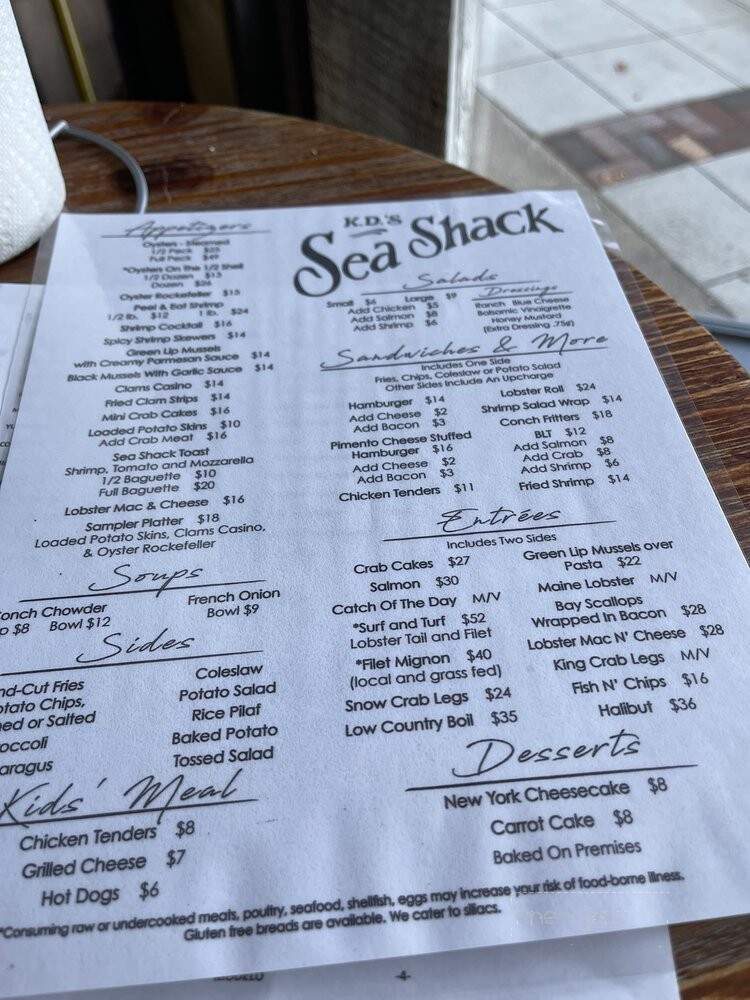 K.D.'S
Sea Shack
Appetizers
Oysters - Steamed
1/2 Peck $25
Full Peck $49
*Oysters On The 1/2 Shell
1/2 Dozen $13
Dozen $26
Oyster Rockefeller $15
Peel & Eat Shrimp
1/2 lb. $12 1 lb. $24
Shrimp Cocktail $16
Spicy Shrimp Skewers $14
Green Lip Mussels
with Creamy Parmesan Sauce $14
Black Mussels With Garlic Sauce $14
Clams Casino $14
Fried Clam Strips $14
Mini Crab Cakes $16
Loaded Potato Skins $10
Add Crab Meat $16
Sea Shack Toast
Shrimp, Tomato and Mozzarella
1/2 Baguette $10
Full Baguette $20
Lobster Mac & Cheese $16
Sampler Platter $18
Loaded Potato Skins, Clams Casino,
& Oyster Rockefeller
Soups
onch Chowder
p $8 Bowl $12
French Onion
Bowl $9
Sides
nd-Cut Fries
otato Chips,
ed or Salted
occoli
aragus
Coleslaw
Potato Salad
Rice Pilaf
Baked Potato
Tossed Salad
Kids' Meal
Chicken Tenders $8
Grilled Cheese $7
Hot Dogs $6
Salads
Small $6 Large $9
Add Chicken $5
Add Salmon $8
Add Shrimp $6
Dressings
Ranch Blue Cheese
Balsamic Vinaigrette
Honey Mustard
(Extra Dressing .75¢)
Sandwiches & More
Includes One Side
Fries, Chips, Coleslaw or Potato Salad
Other Sides Include An Upcharge
Hamburger $14
Add Cheese $2
Add Bacon $3
Pimento Cheese Stuffed
Hamburger $16
Add Cheese $2
Add Bacon $3
Chicken Tenders $11
Lobster Roll $24
Shrimp Salad Wrap $14
Conch Fritters $18
BLT $12
Add Salmon $8
Add Crab $8
Add Shrimp $6
Fried Shrimp $14
Entrées
Includes Two Sides
Crab Cakes $27
Salmon $30
Catch Of The Day M/V
*Surf and Turf $52
Lobster Tail and Filet
*Filet Mignon $40
(local and grass fed)
Snow Crab Legs $24
Low Country Boil $35
Green Lip Mussels over
Pasta $22
Maine Lobster M/V
Bay Scallops
Wrapped In Bacon $28
Lobster Mac N' Cheese $28
King Crab Legs M/V
Fish N' Chips $16
Halibut $36
Desserts
New York Cheesecake $8
Carrot Cake $8
Baked On Premises
*Consuming raw or undercooked meats, poultry, seafood, shellfish, eggs may increase your risk of food-borne illness.
Gluten free breads are available. We cater to siliacs.
-4-